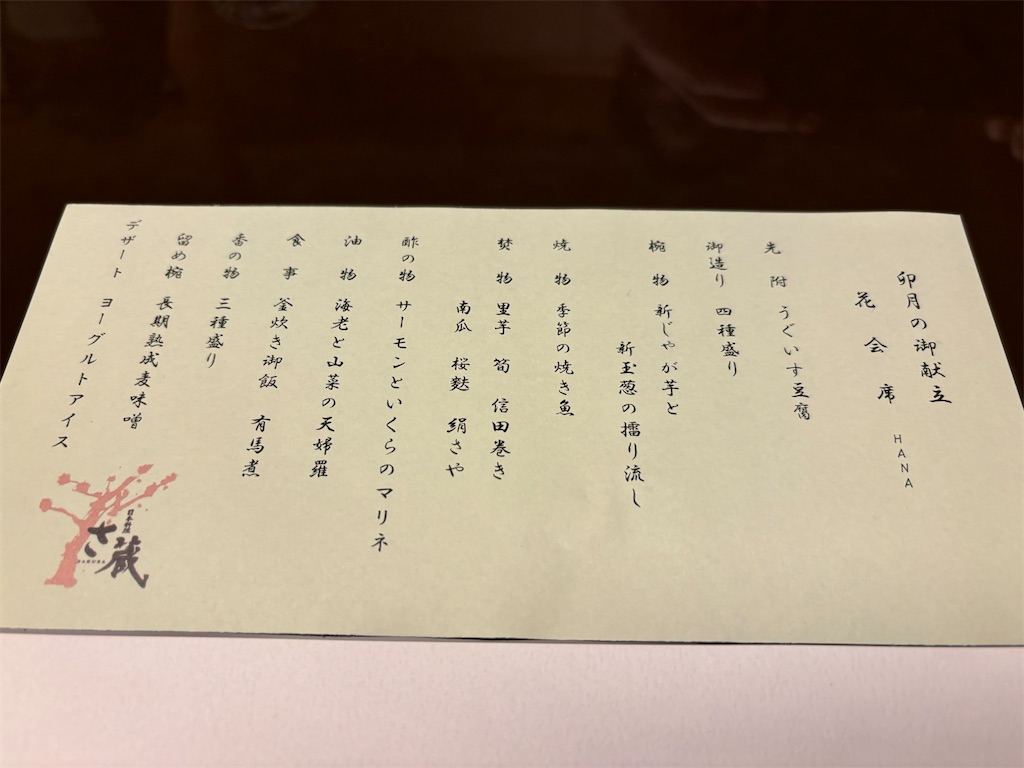 卯月の御献立
花会席 HANA
先附 うぐいす豆腐
御造り 四種盛り
椀物 新じゃが芋と
新玉葱の擂り流し
焼物 季節の焼き魚
焚物 里芋 筍 信田巻き
南瓜 桜麩 絹さや
酢の物 サーモンといくらのマリネ
油物 海老と山菜の天婦羅
食事 釜炊き御飯 有馬煮
香の物 三種盛り
留め椀 長期熟成麦味噌
デザート ヨーグルトアイス
日本料理
さ蔵
SAKURA